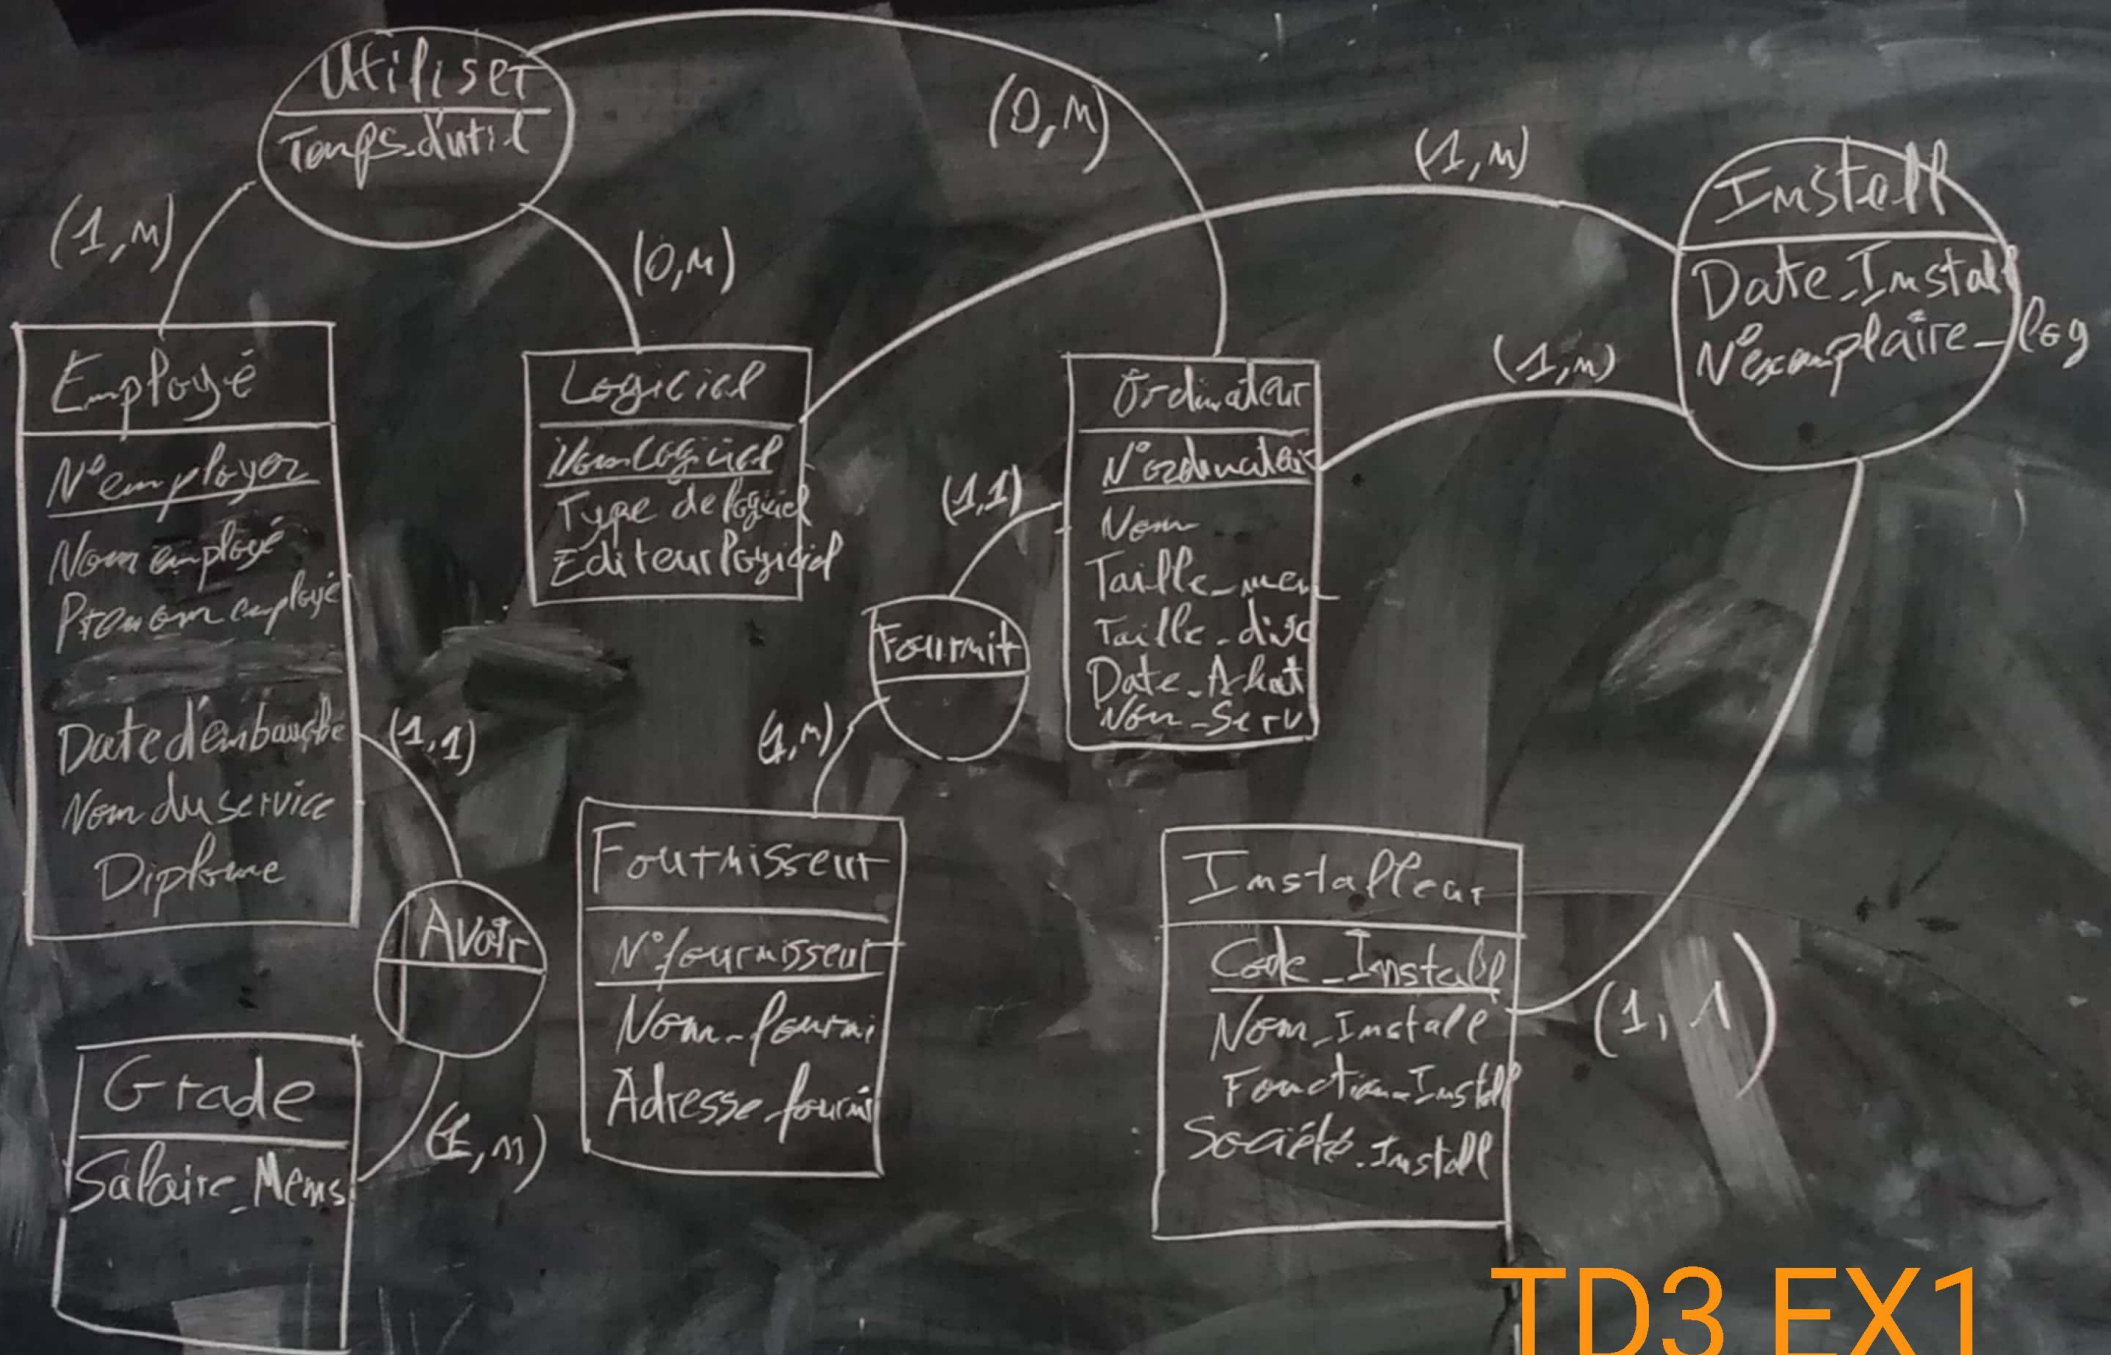 Utiliser
Temps_d'util
(1,n)
(0,n)
(0,n)
(1,n)
(1,n)
Install
Date_Install
N°examplaire_log
Employé
N°employer
Nom employé
Prenom employé
Date d'embauche
Nom du service
Diplome
Logiciel
Nom logiciel
Type de logiciel
Editeur logiciel
Ordinateur
N°ordinateur
Nom
Taille_mem
Taille_disc
Date_Ahat
Nom_Serv
(1,1)
Fournit
(1,n)
(1,1)
Avoir
(1,n)
Grade
Salaire_Mens
Fournisseur
N°fournisseur
Nom_fourni
Adresse_fourni
Installeur
Code_Install
Nom_Install
Fonction_Install
Société_Install
(1,1)
TD3 EX1